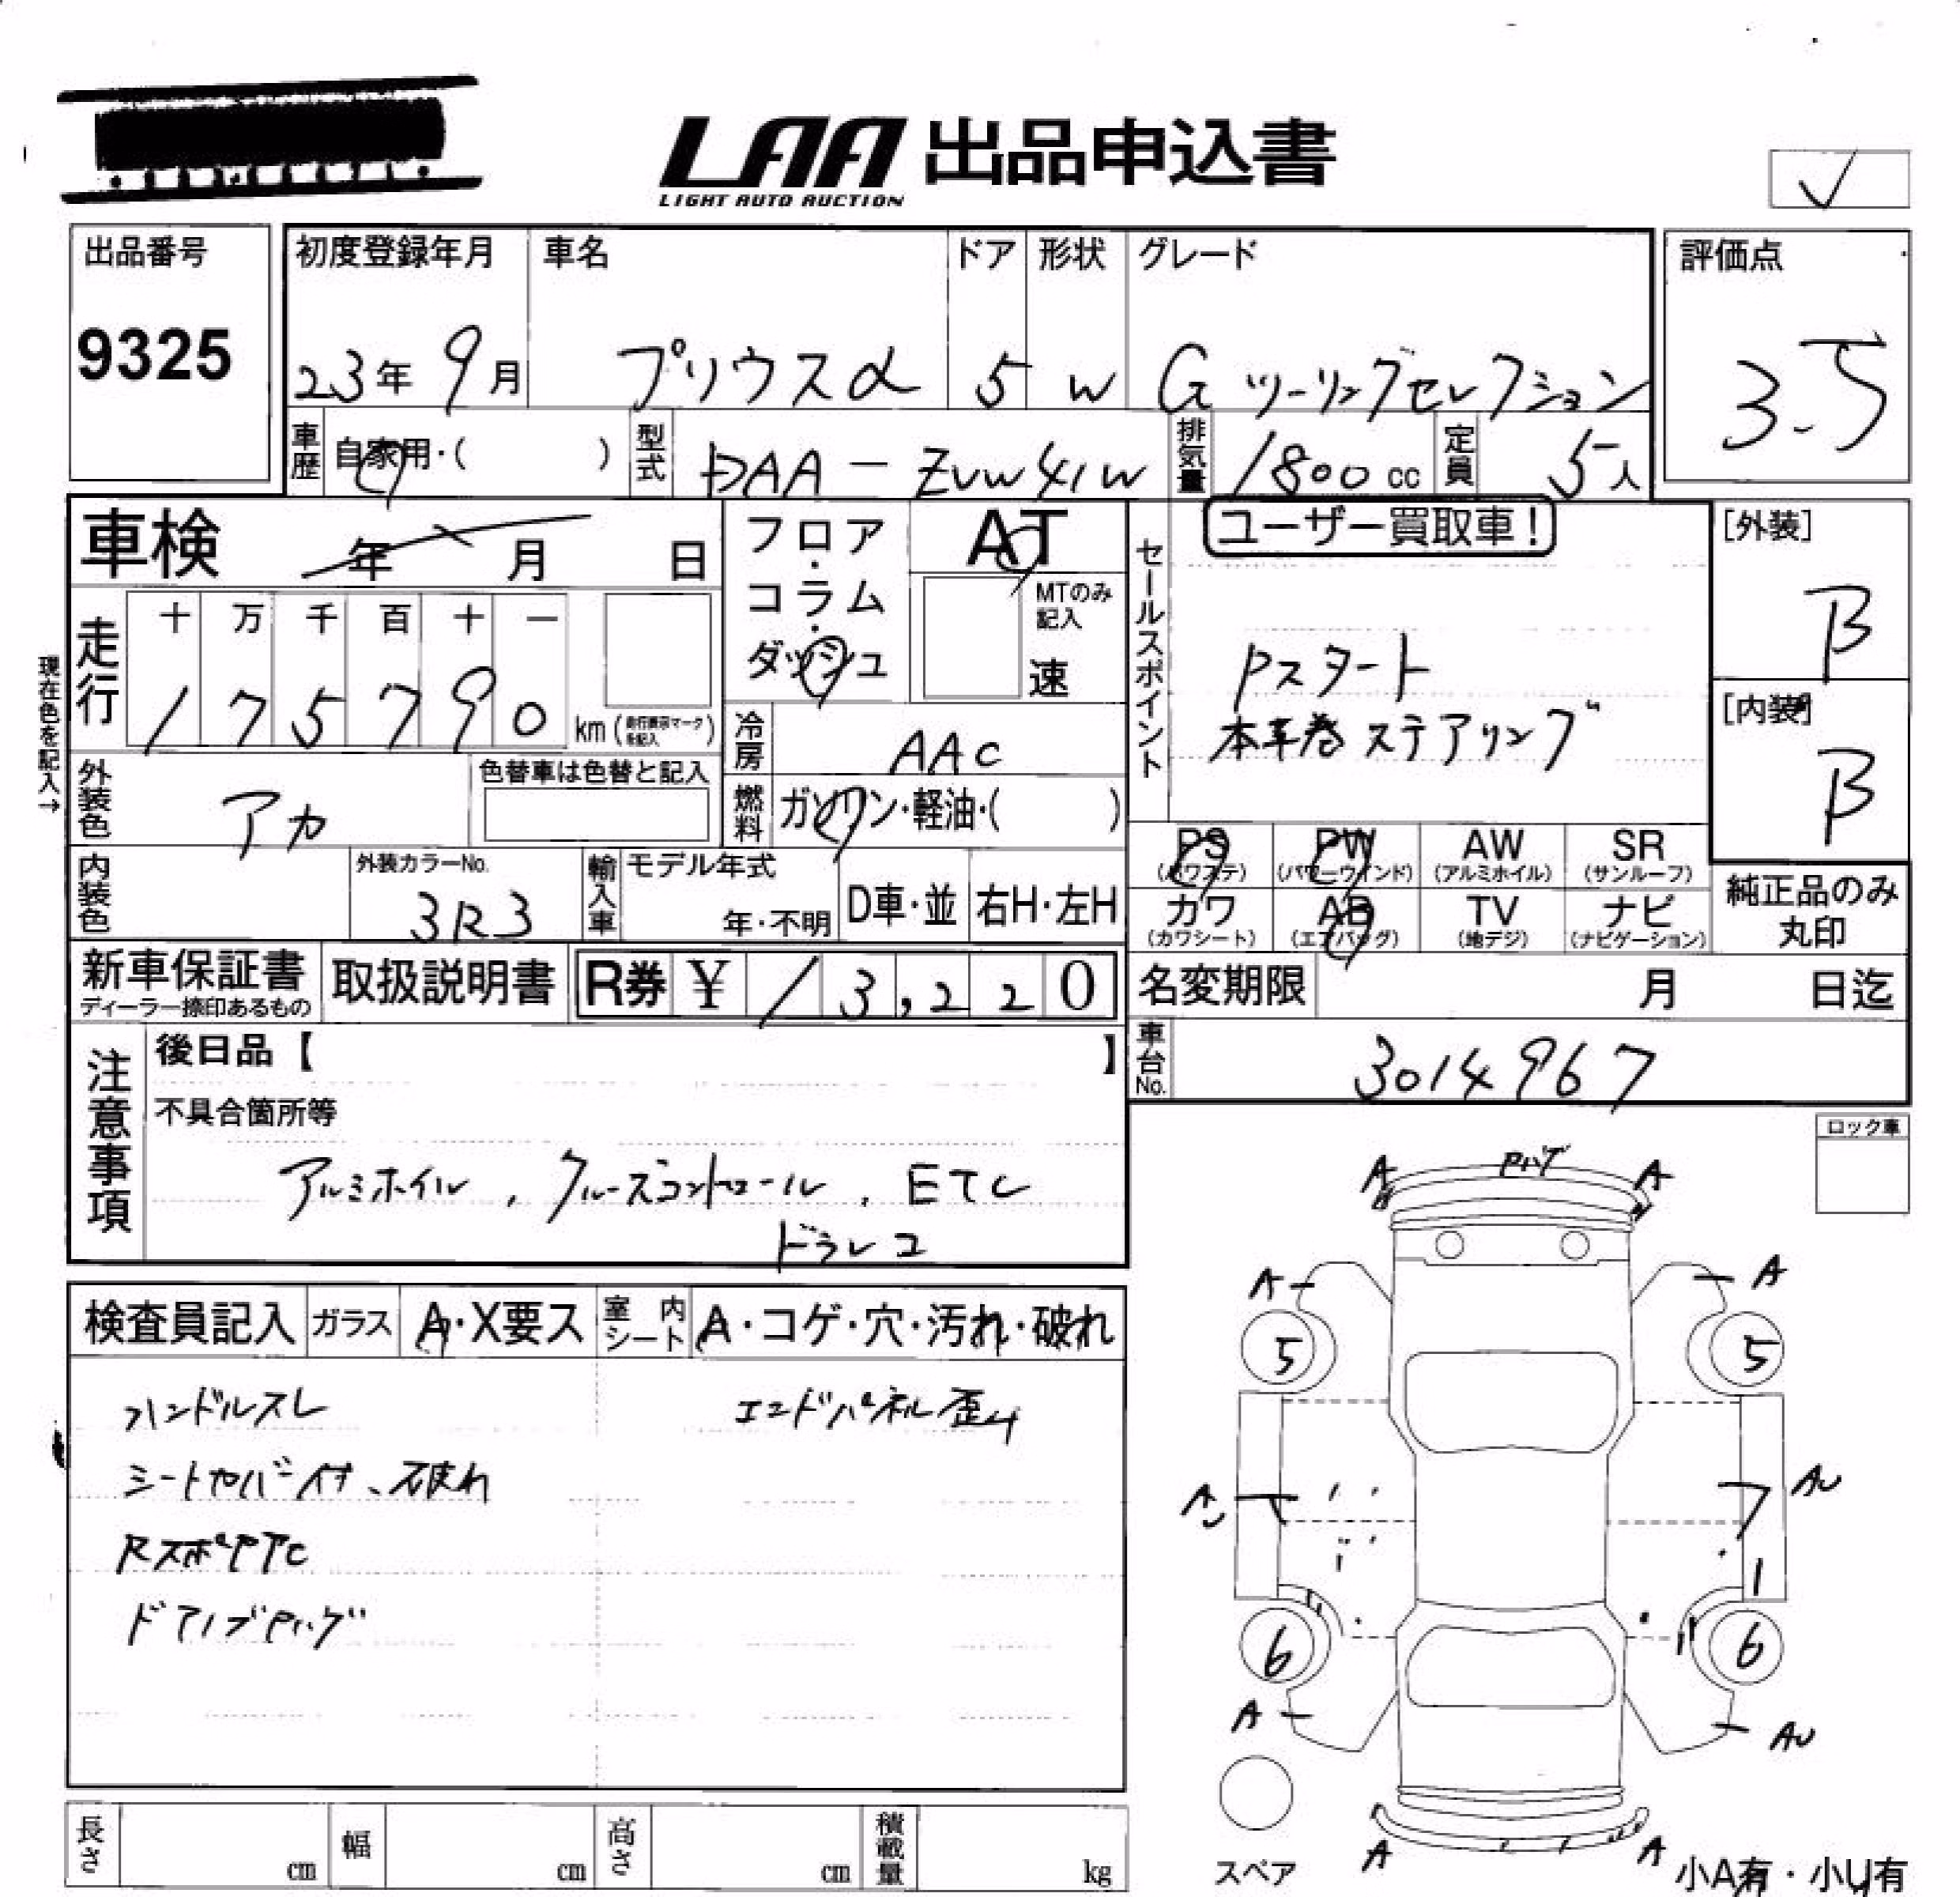 LAA 出品申込書
LIGHT AUTO AUCTION
出品番号
9325
初度登録年月
23年 9月
車名
プリウスα
ドア
5
形状
W
グレード
G ツーリングセレクション
評価点
3.5
車歴
自家用・( )
型式
DAA-ZVW41W
排気量
1800cc
定員
5人
車検 年 月 日
フロア・コラム・ダッシュ
AT
MTのみ記入
速
セールスポイント
ユーザー買取車!
Pスタート
本革巻ステアリング
[外装]
B
[内装]
B
現在色を記入→
走行
十 万 千 百 十 一
1 7 5 7 9 0 km(走行表示マークを記入)
冷房
AAC
外装色
アカ
色替車は色替と記入
燃料
ガソリン・軽油・( )
PS (パワステ)
PW (パワーウインド)
AW (アルミホイル)
SR (サンルーフ)
カワ (カワシート)
AB (エアバッグ)
TV (地デジ)
ナビ (ナビゲーション)
純正品のみ
丸印
内装色
外装カラーNo.
3R3
輸入車
モデル年式
年・不明
D車・並
右H・左H
新車保証書
ディーラー捺印あるもの
取扱説明書
R券 ¥ 13,220
名変期限 月 日迄
車台No.
3014967
注意事項
後日品【 】
不具合箇所等
アルミホイル, クルーズコントロール, ETC
ドラレコ
ロック車
検査員記入
ガラス
A・X要ス
室内シート
A・コゲ・穴・汚れ・破れ
ハンドルスレ
エンドパネル歪み
シートカバー付、破れ
ドアノブ
A
A
A
A
5
5
AU
AU
1
6
6
A
AU
A
A
スペア
小A有・小U有
長さ cm
幅 cm
高さ cm
積載量 kg